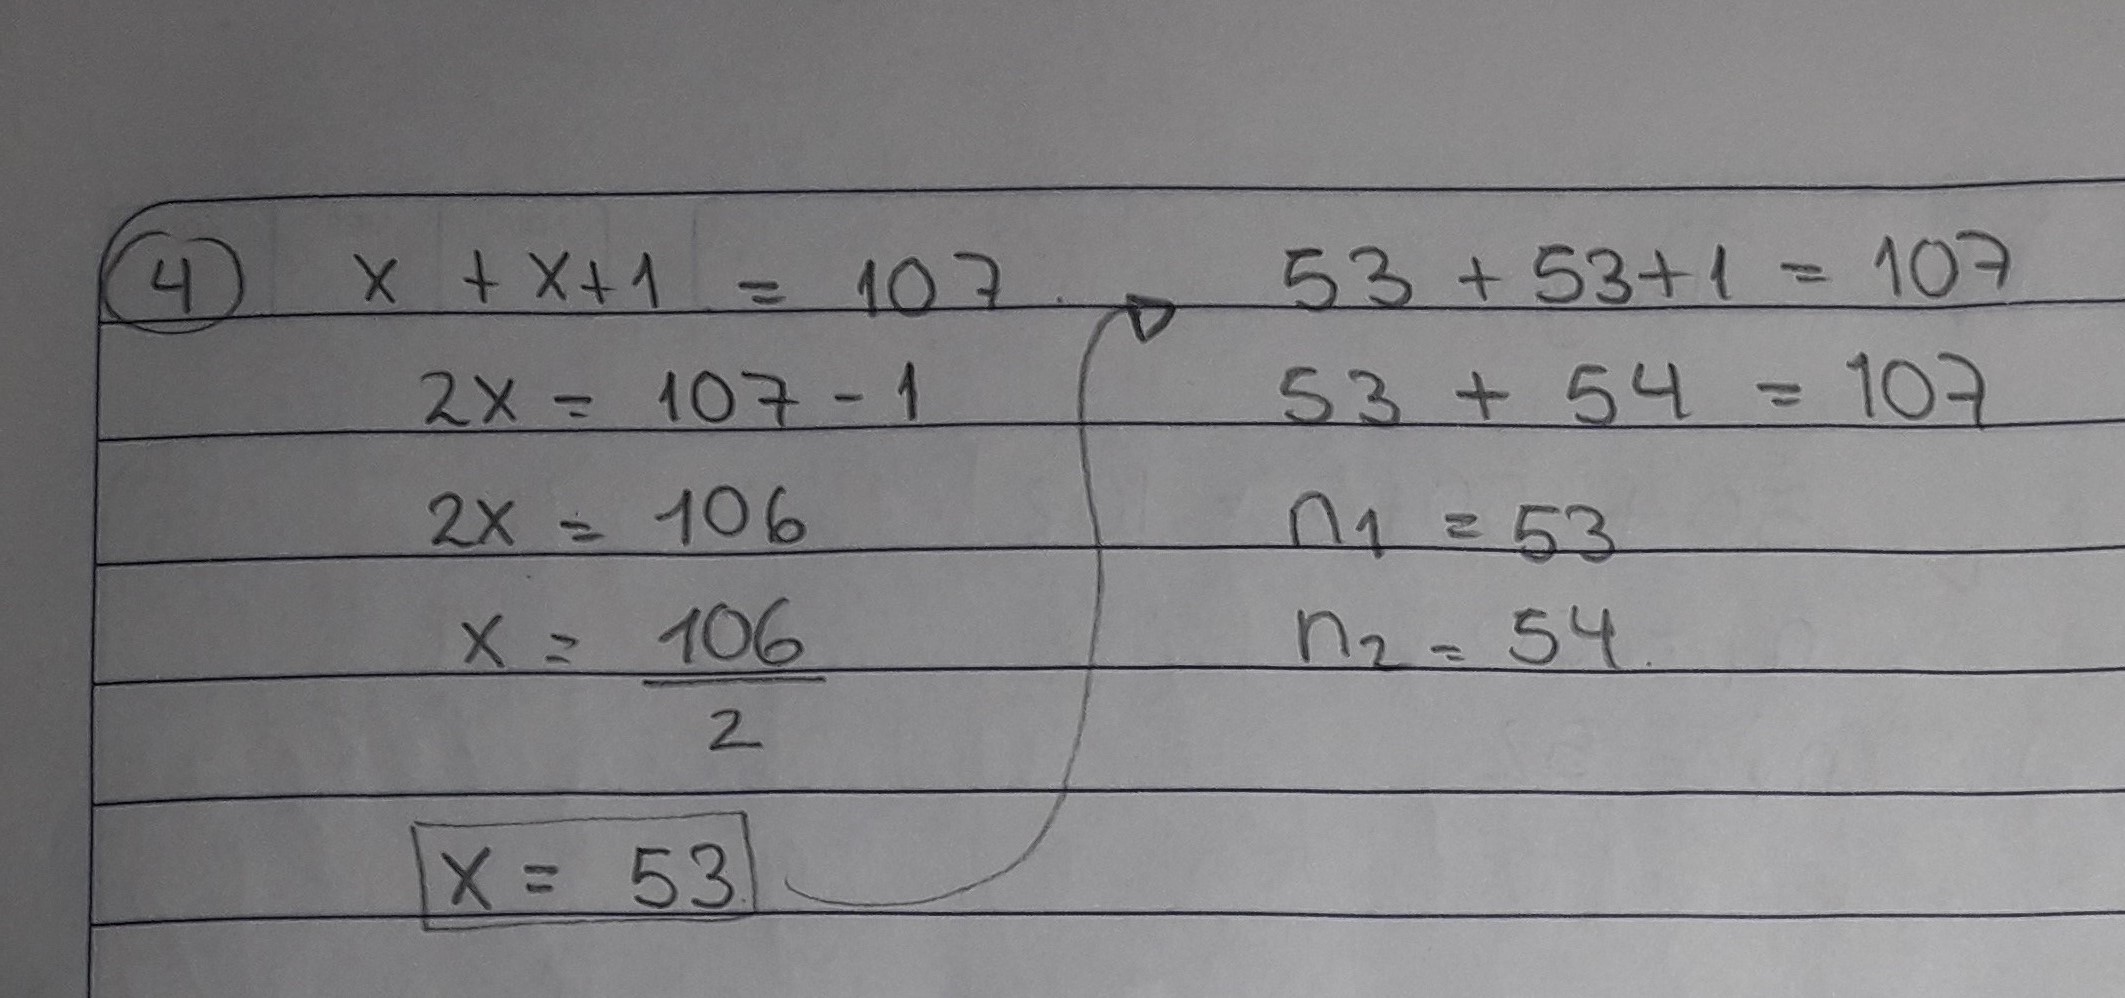 4 x + x+1 = 107
2x = 107 - 1
2x = 106
x = 106
2
x = 53
53 + 53+1 = 107
53 + 54 = 107
n1 = 53
n2 = 54.